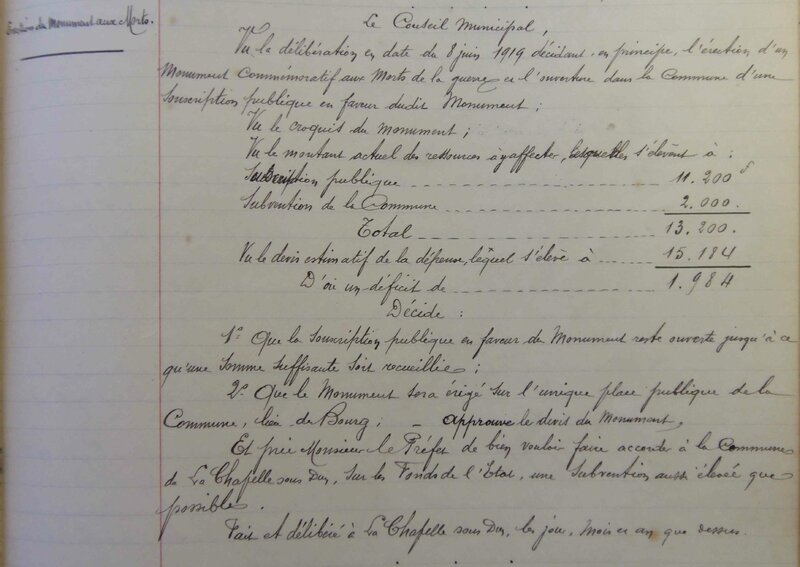 Erection du Monument aux Morts.
Le Conseil Municipal,
Vu la délibération en date du 8 juin 1919 décidant, en principe, l'érection d'un
Monument Commémoratif aux Morts de la guerre et l'ouverture dans la Commune d'une
souscription publique en faveur dudit Monument ;
Vu le croquis du monument ;
Vu le montant actuel des ressources à y affecter, lesquelles s'élèvent à :
Souscription publique 11.200 f
Subvention de la Commune 2.000.
Total 13.200.
Vu le devis estimatif de la dépense, lequel s'élève à 15.184
D'où un déficit de 1.984
Décide :
1º Que la souscription publique en faveur du Monument reste ouverte jusqu'à ce
qu'une somme suffisante soit recueillie ;
2º Que le Monument sera érigé sur l'unique place publique de la
Commune, lieu du Bourg ; - approuve le devis du Monument,
Et prie Monsieur le Préfet de bien vouloir faire accorder à la Commune
de La Chapelle sous Dun, sur les Fonds de l'Etat, une subvention aussi élevée que
possible.
Fait et délibéré à La Chapelle sous Dun, les jour, mois et an que dessus.